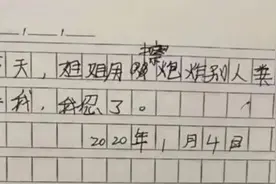 天，姐姐用擦炮炸别人
我，我忍了。
2020年1月4日